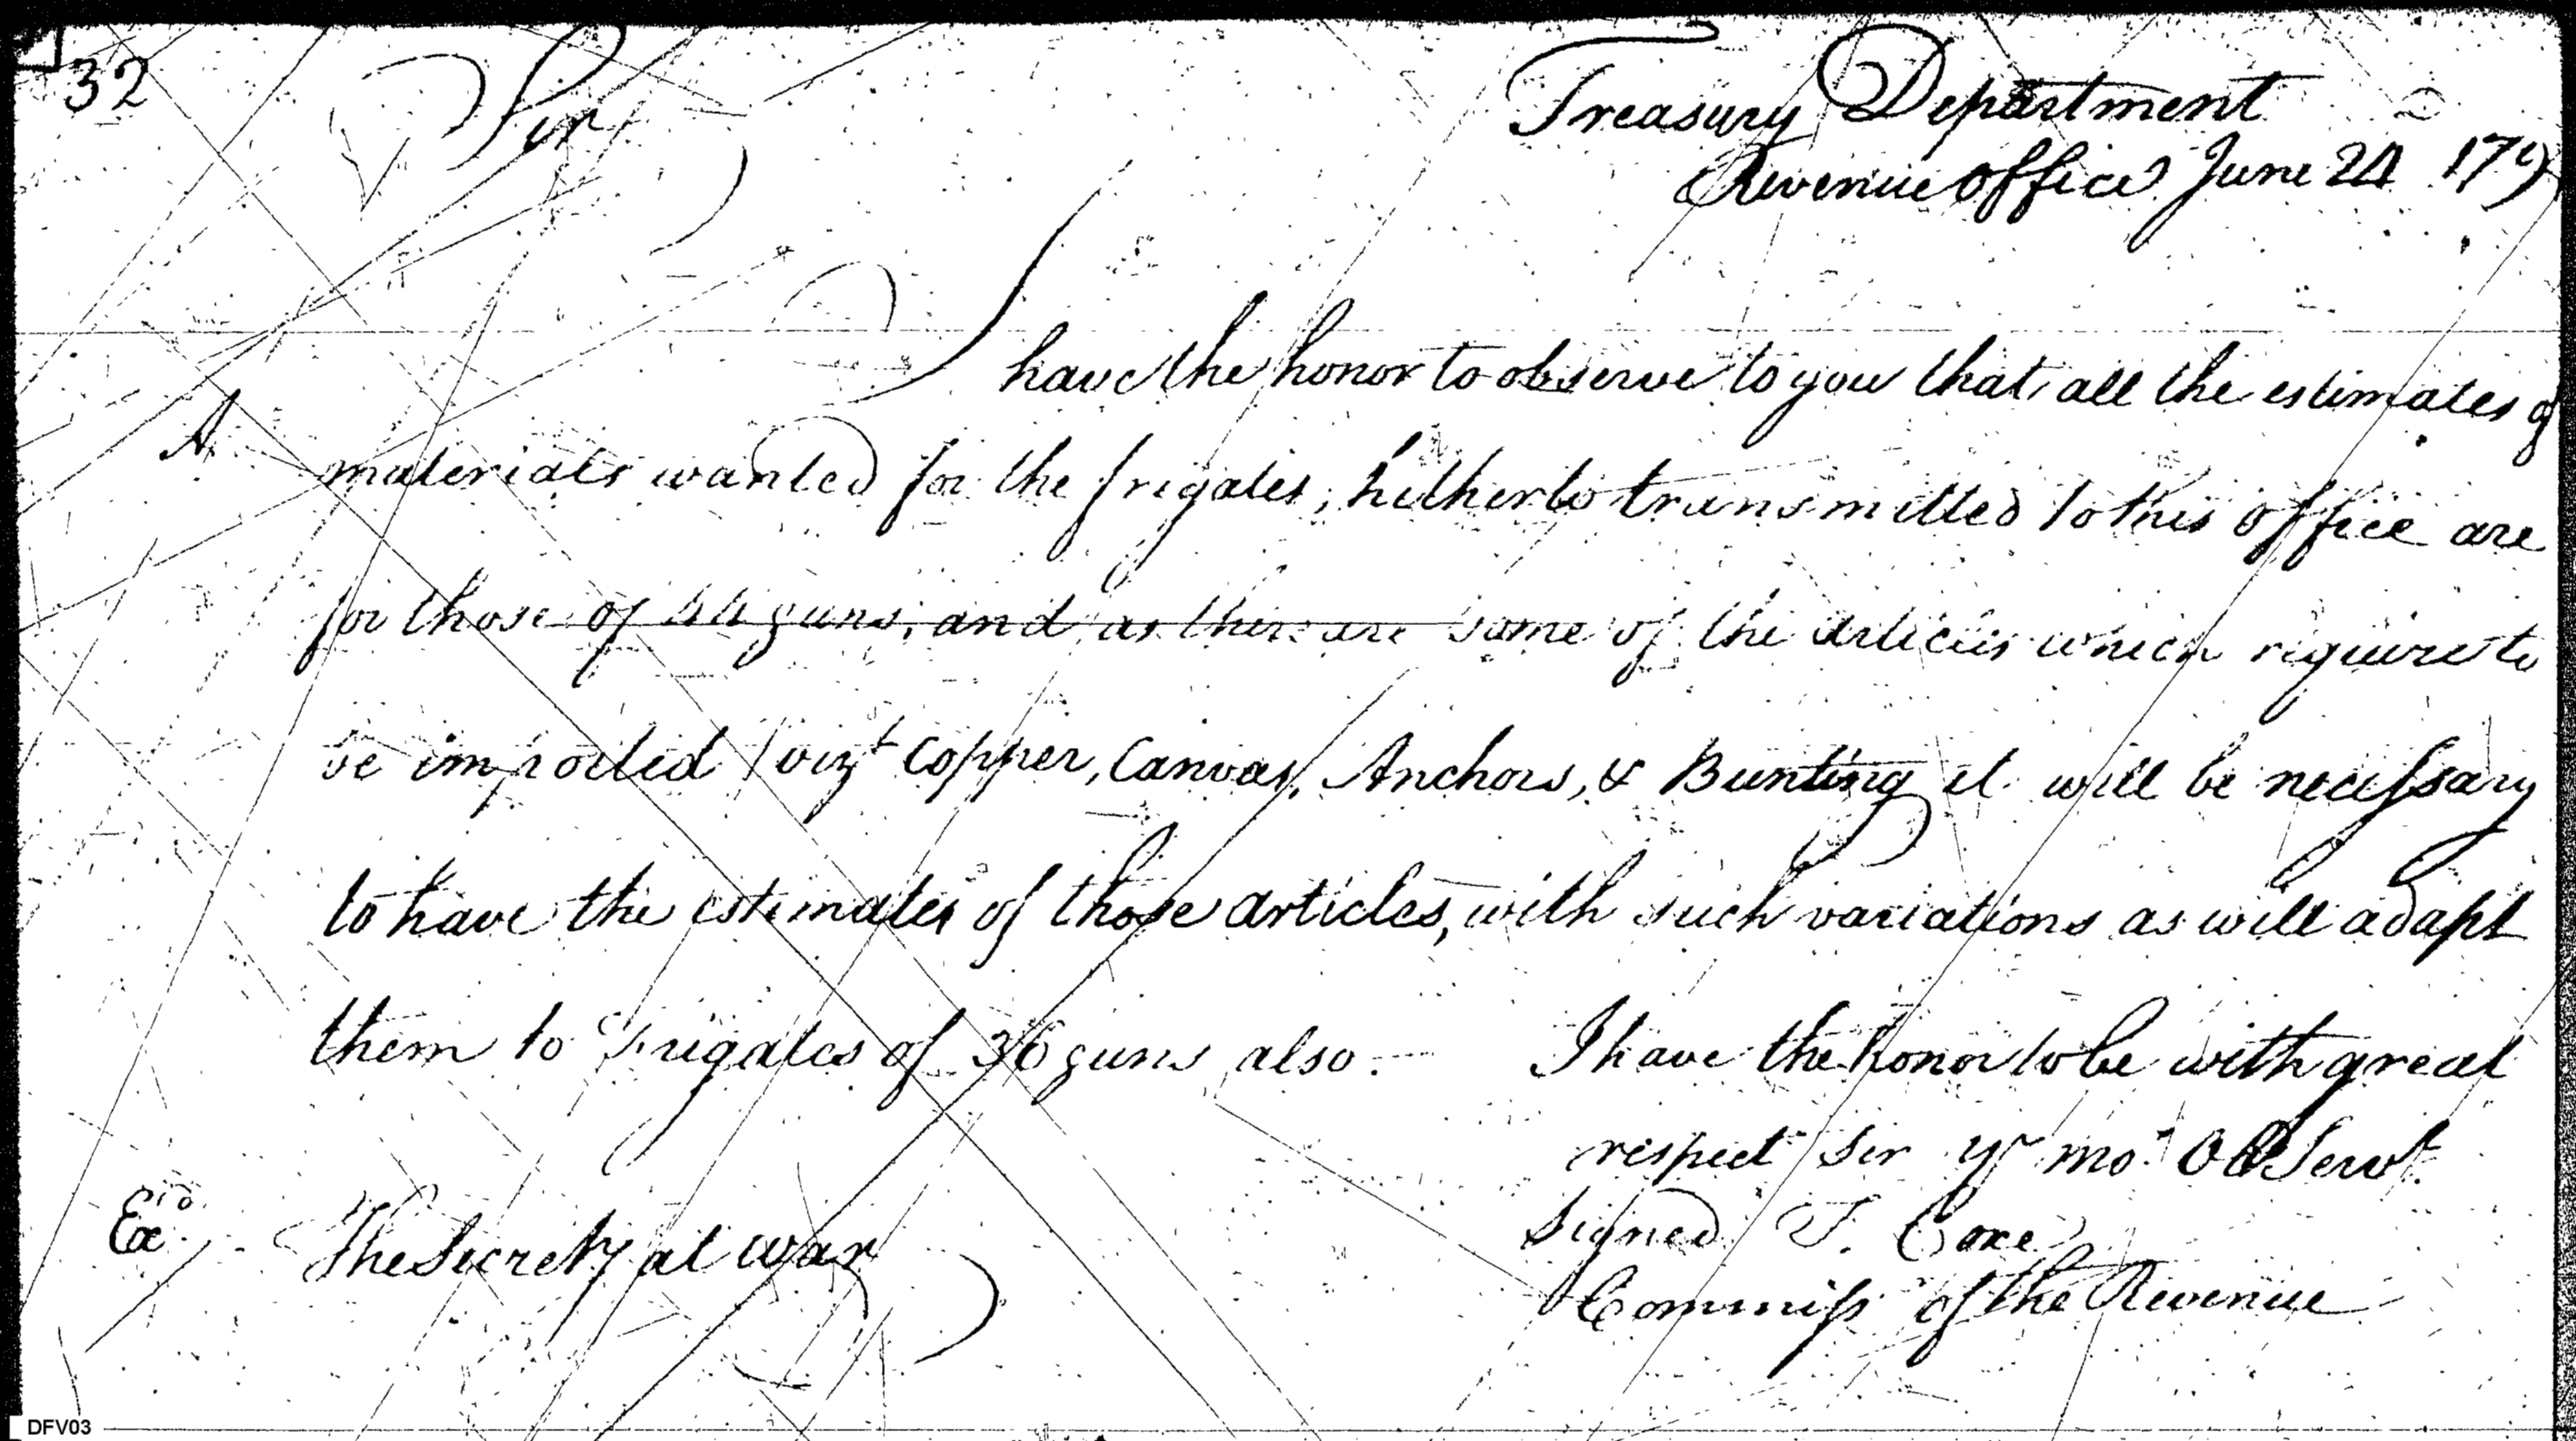 32
Sir
Treasury Department
Revenue office June 24 179
I have the honor to observe to you that all the estimates of
A
materials wanted for the frigates, hitherto transmitted to this office are
for those of 44 guns, and as there are some of the articles which require to
be imported / vizt Copper, Canvas, Anchors, & Bunting it will be necessary
to have the estimates of those articles, with such variations as will adapt
them to Frigates of 36 guns also. I have the honor to be with great
respect Sir yr mo. Ob Servt.
Signed T. Coxe
Exd. The Secrety at war
Commiss of the Revenue
DFV03